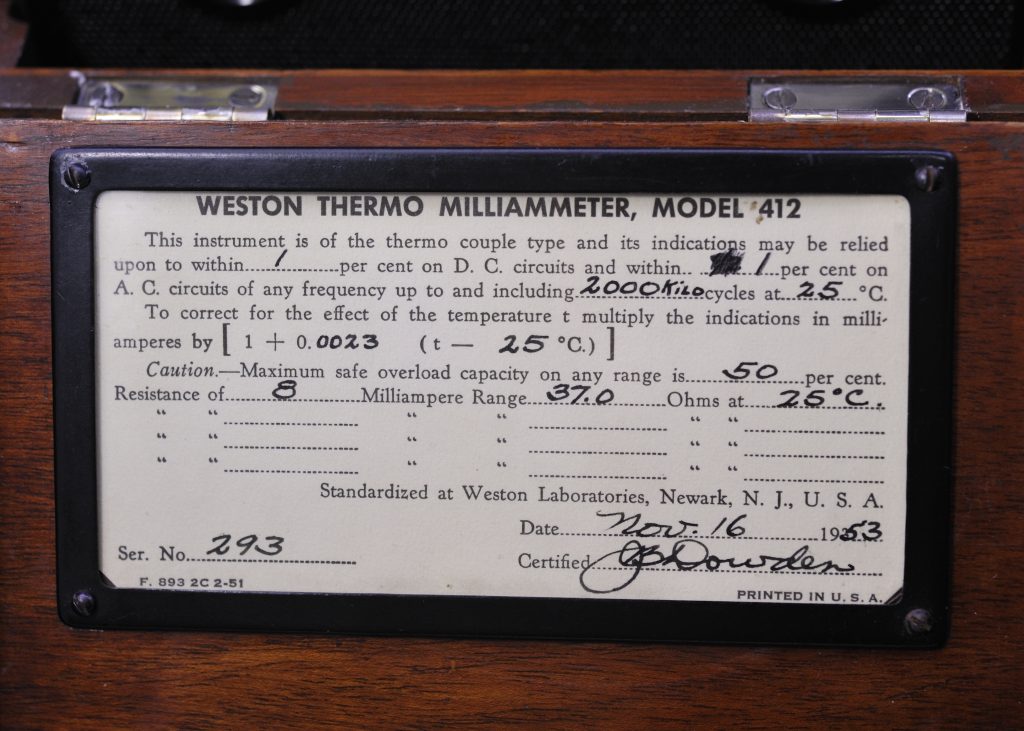 WESTON THERMO MILLIAMMETER, MODEL 412
This instrument is of the thermo couple type and its indications may be relied
upon to within 1 per cent on D. C. circuits and within 1 per cent on
A. C. circuits of any frequency up to and including 2000 Kilo cycles at 25 °C.
To correct for the effect of the temperature t multiply the indications in milli-
amperes by [ 1 + 0.0023 (t — 25 °C.) ]
Caution.—Maximum safe overload capacity on any range is 50 per cent.
Resistance of 8 Milliampere Range 37.0 Ohms at 25°C.
“ “ “ “ “ “
“ “ “ “ “ “
“ “ “ “ “ “
Standardized at Weston Laboratories, Newark, N. J., U. S. A.
Date Nov. 16 1953
Ser. No. 293
Certified JB Dowden
F. 893 2C 2-51
PRINTED IN U. S. A.